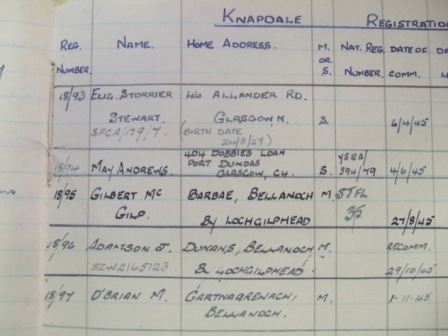 KNAPDALE REGISTRATION
REG. NUMBER. NAME. HOME ADDRESS. M. OR S. NAT. REG. NUMBER. DATE OF COMM.
18/93 ELIZ. STORRIER 46 ALLANDER RD.
STEWART. GLASGOW N. S. 6/4/45
SFCA/179/7. (BIRTH DATE
24/3/27)
404 DOBBIES LOAN
18/94 MAY ANDREWS. PORT DUNDAS S. YSEA/
GLASGOW, C4. 394/79 4/6/45
18/95 GILBERT MC BARBAE, BELLANOCH M. STFL
GILP. BY LOCHGILPHEAD 35 27/8/45
18/96 ADAMSON J. DUNANS, BELLANOCH M. RECOMM.
SZW2145123 & LOCHGILPHEAD 29/10/45
18/97 D'BRIAN M. M. 1-11-45
BELLANOCH.